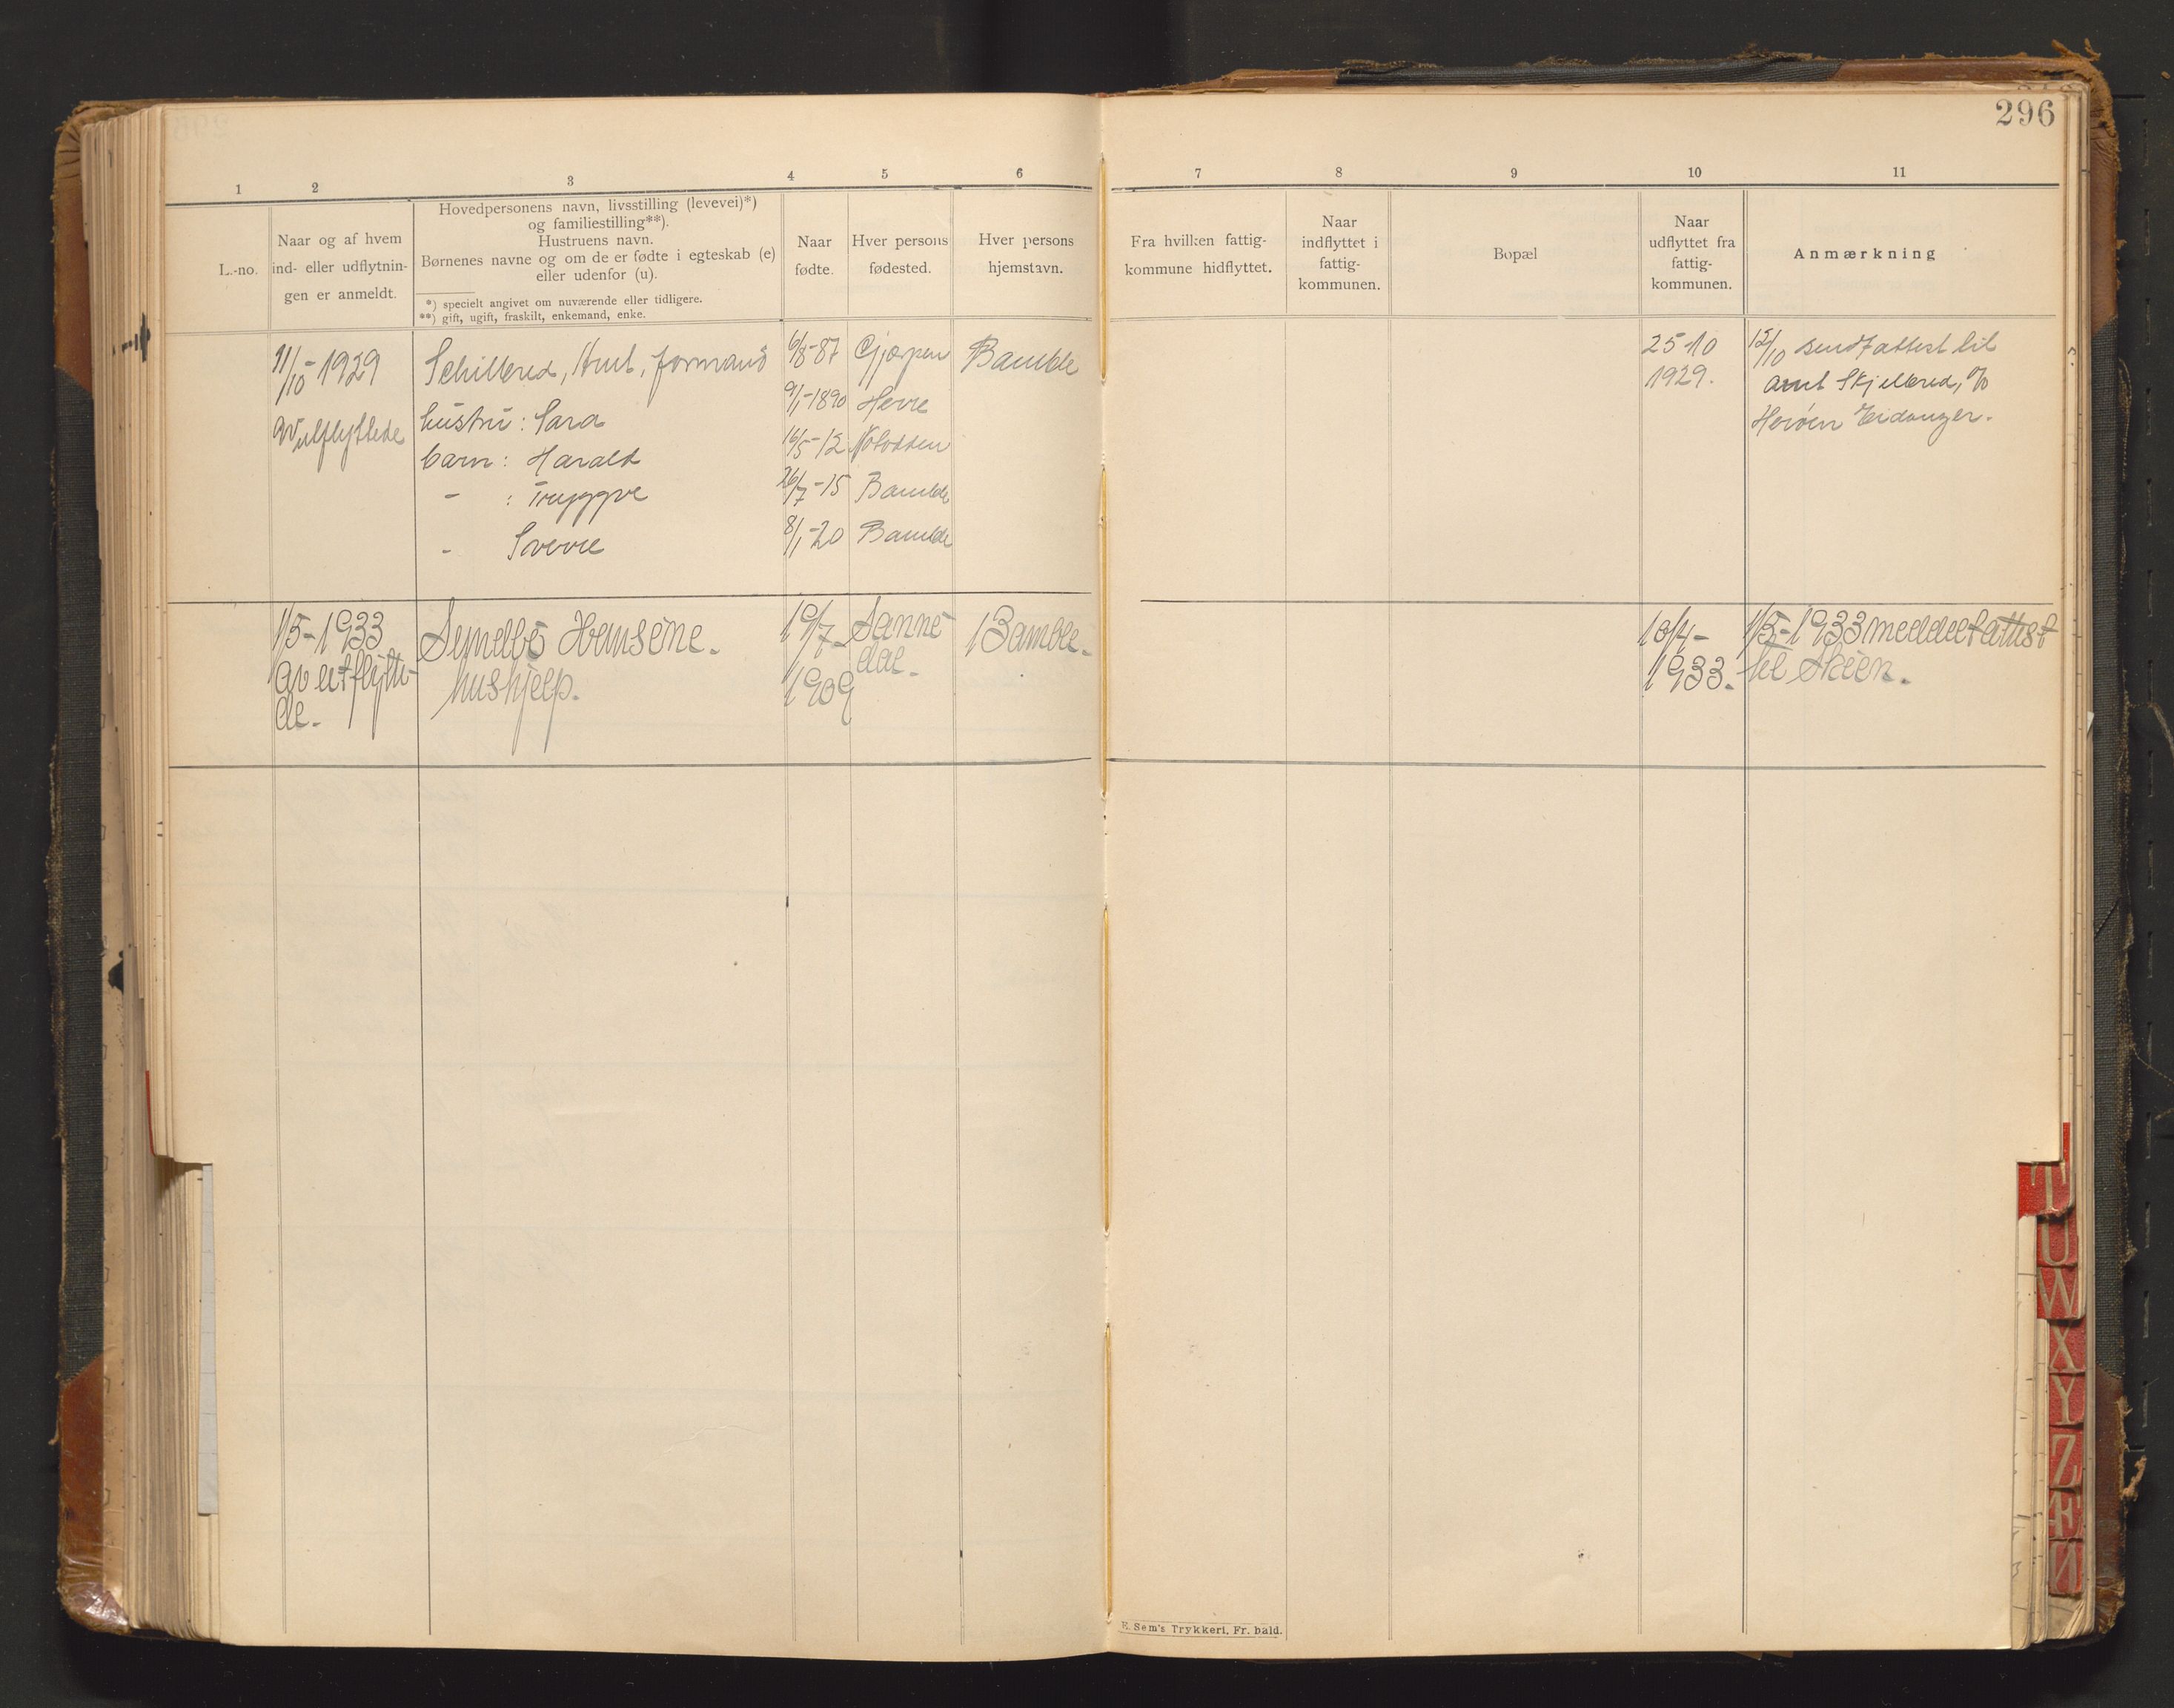 296
1 2 3 4 5 6 7 8 9 10 11
L.-no.
Naar og af hvem
ind- eller udflytnin-
gen er anmeldt.
Hovedpersonens navn, livsstilling (levevei)*)
og familiestilling**).
Hustruens navn.
Børnenes navne og om de er fødte i egteskab (e)
eller udenfor (u).
*) specielt angivet om nuværende eller tidligere.
**) gift, ugift, fraskilt, enkemand, enke.
Naar
fødte.
Hver persons
fødested.
Hver persons
hjemstavn.
Fra hvilken fattig-
kommune hidflyttet.
Naar
indflyttet i
fattig-
kommunen.
Bopæl
Naar
udflyttet fra
fattig-
kommunen.
Anmærkning
11/10-1929
av utflyttede
Schillered, Arnt, formand
hustru: Sara
barn: Harald
- : Tryggve
- Sverre
6/8-87 Gjerpen Bamble
9/1-1890 Herre
16/5-12 Notodden
26/7-15 Bamble
8/1-20 Bamble
25-10
1929.
15/10 sendt attest til
Arnt Skjellered, %
Herøen Eidanger.
1/5-1933
av utflytte-
de.
Semelbo
hushjelp.
19/7-
1909
Sanne-
dal.
Bamble.
10/4-
1933.
1/5-1933 meddelt attest
til Skien.
T
U
W
X
Y
Z
Æ
Ø
E. Sem's Trykkeri, Fr. hald.